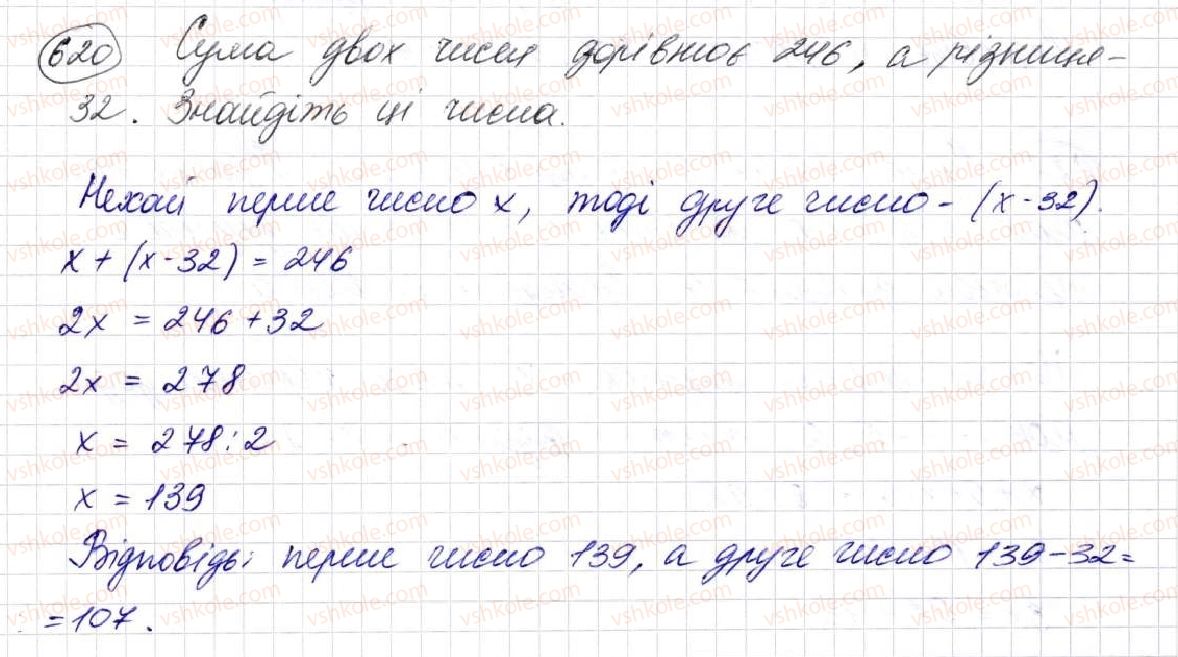 620 Сума двох чисел дорівнює 246, а різниця -
32. Знайдіть ці числа.
Нехай перше число x, тоді друге число - (x - 32).
x + (x - 32) = 246
2x = 246 + 32
2x = 278
x = 278 : 2
x = 139
Відповідь: перше число 139, а друге число 139 - 32 =
= 107.